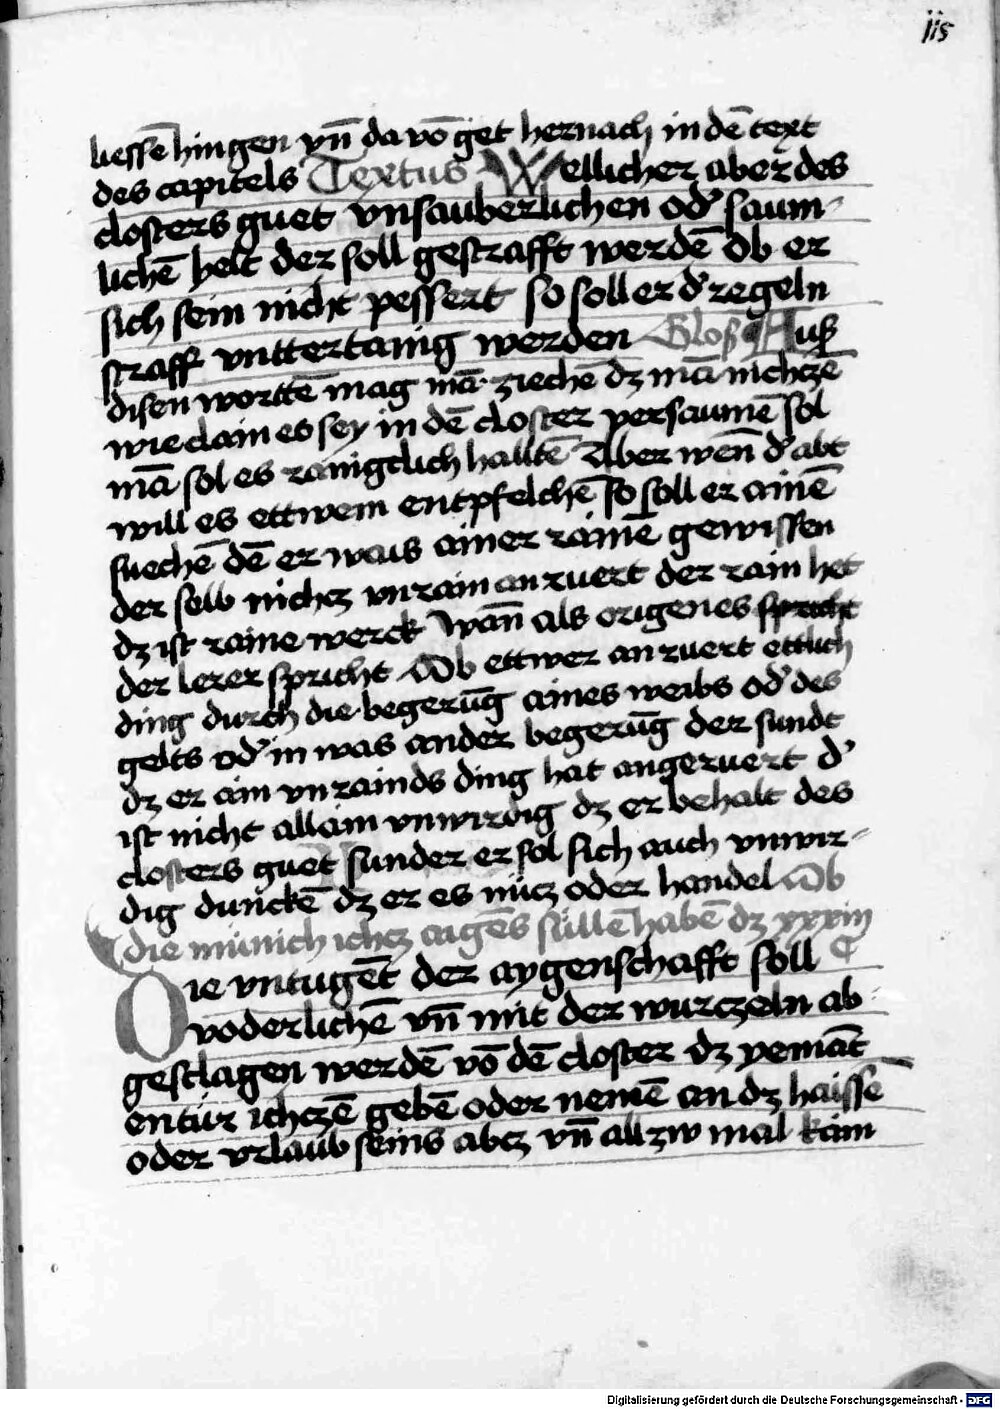 iis
liessē hingen vn̄ da vō get hernach in dē text
des capitels Textus Wellicher aber des
closters guet vnsauberlichen od' saum-
lichē helt der soll gestrafft werdē Ob er
sich sein nicht pessert so soll er d' regeln
straff vnttertanig werden Glosß Auß
disen worttē mag mā ziechē dz mā nichczē
wie clain es sey in dē closter versaumē sol
mā sol es rainigclich halltē Aber wen̄ d' abt
will es ettwem entpfelchē so soll er ainē
suechē dē er wais ainer rainē gewissen
der selb nichcz vnrain anruert der rain het
dz ist raine werck Wan̄ als origenes spricht
der lerer spricht Ob ettwer an ruert ettlich
ding durch die begerūg aines weibs od' des
gelts od' in was ander begerūg der sundt
dz er ain vnrainds ding hat angeruert d'
ist nicht allain vnwirdig dz er behalt des
closters guet sunder er sol sich auch vnwir-
dig dunckē dz er es nücz oder handel Ob
die münich ichcz aigēs süllē habē dz xxxiij
Die vntugēt der aygenschafft soll C
voderlichē vn̄ mit der wurczeln ab
geschlagen werdē vō dē closter dz yemāt
entür ichczē gebē oder nemē an dz haissē
oder vrlaub seins abcz vn̄ all zw mal kain
Digitalisierung gefördert durch die Deutsche Forschungsgemeinschaft - DFG